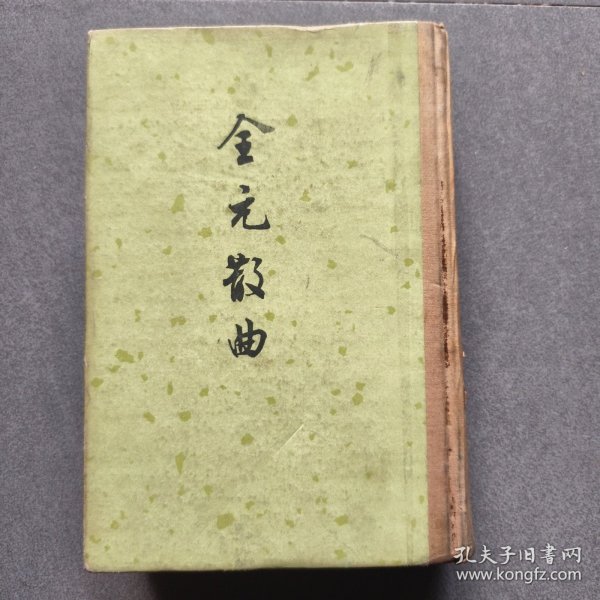 全元散曲
孔夫子旧书网
www.kongfz.com